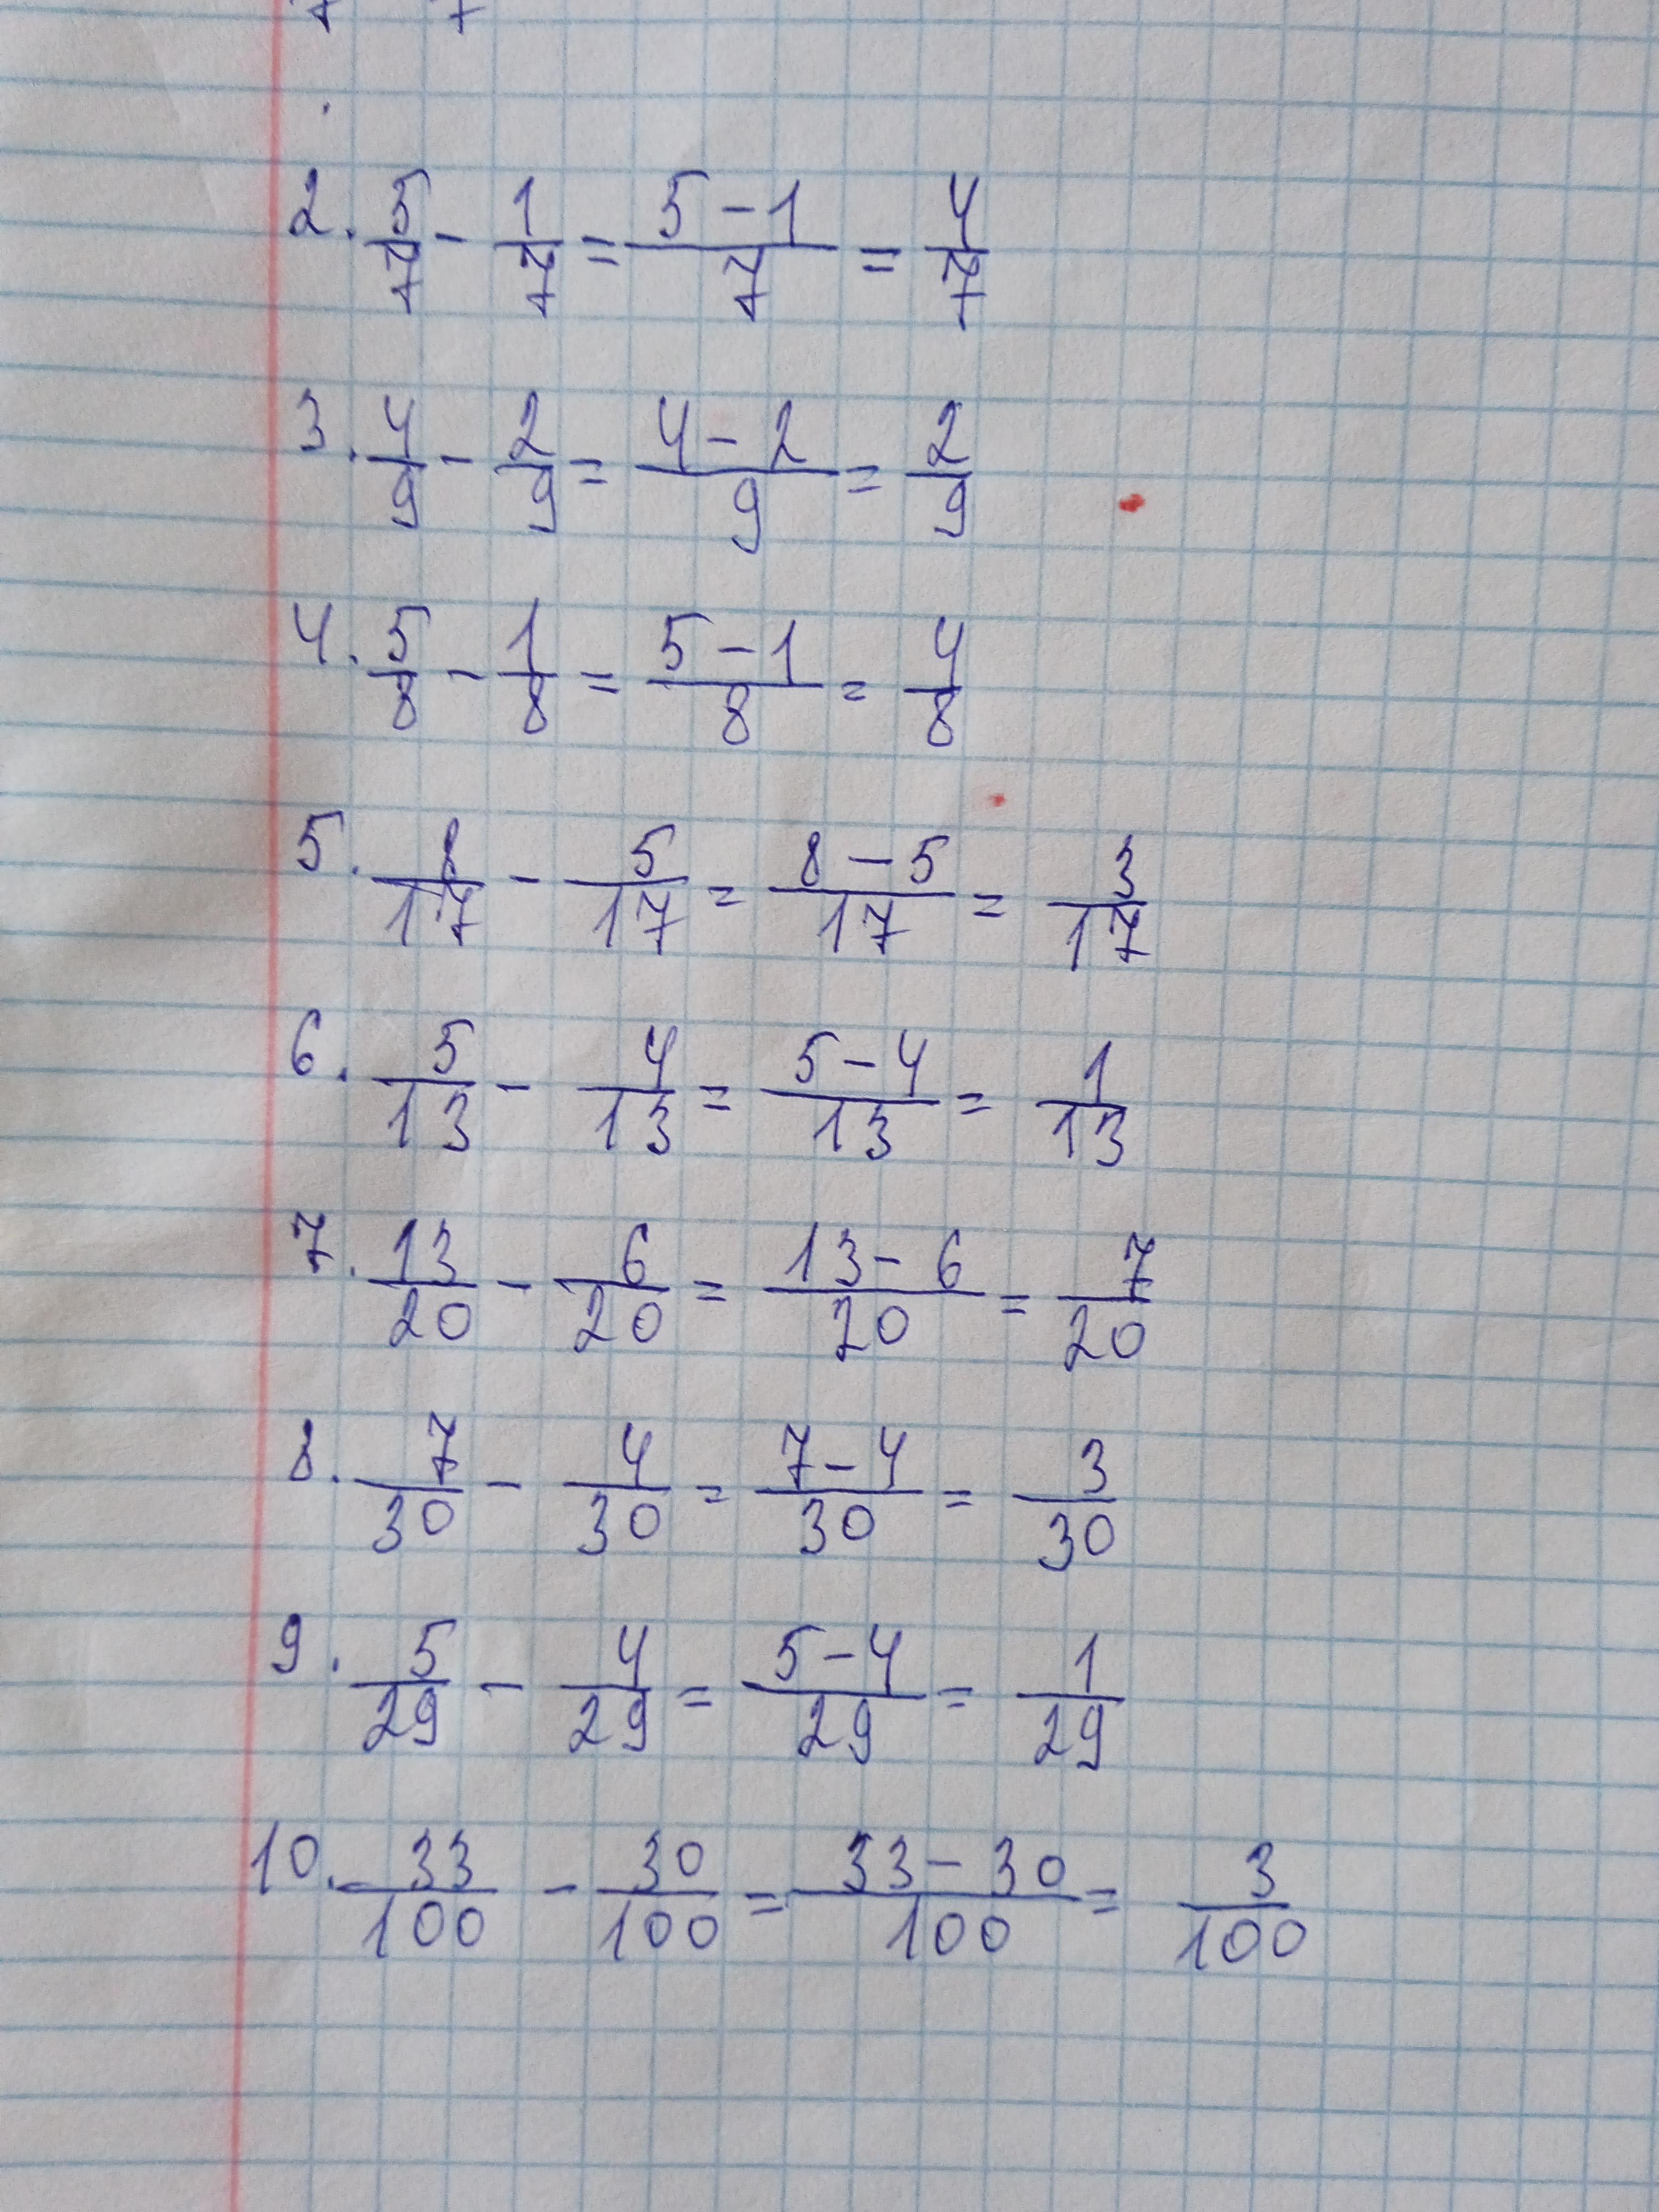 2. 5/7 - 1/7 = (5-1)/7 = 4/7
3. 4/9 - 2/9 = (4-2)/9 = 2/9
4. 5/8 - 1/8 = (5-1)/8 = 4/8
5. 8/17 - 5/17 = (8-5)/17 = 3/17
6. 5/13 - 4/13 = (5-4)/13 = 1/13
7. 13/20 - 6/20 = (13-6)/20 = 7/20
8. 7/30 - 4/30 = (7-4)/30 = 3/30
9. 5/29 - 4/29 = (5-4)/29 = 1/29
10. 33/100 - 30/100 = (33-30)/100 = 3/100